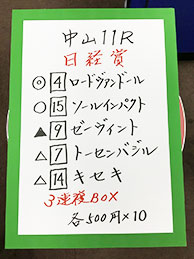 中山11R
日経賞
◎4 ロードヴァンドール
○15 ソールインパクト
▲9 ゼーヴィント
△7 トーセンバジル
△14 キセキ
3連複BOX
各500円×10